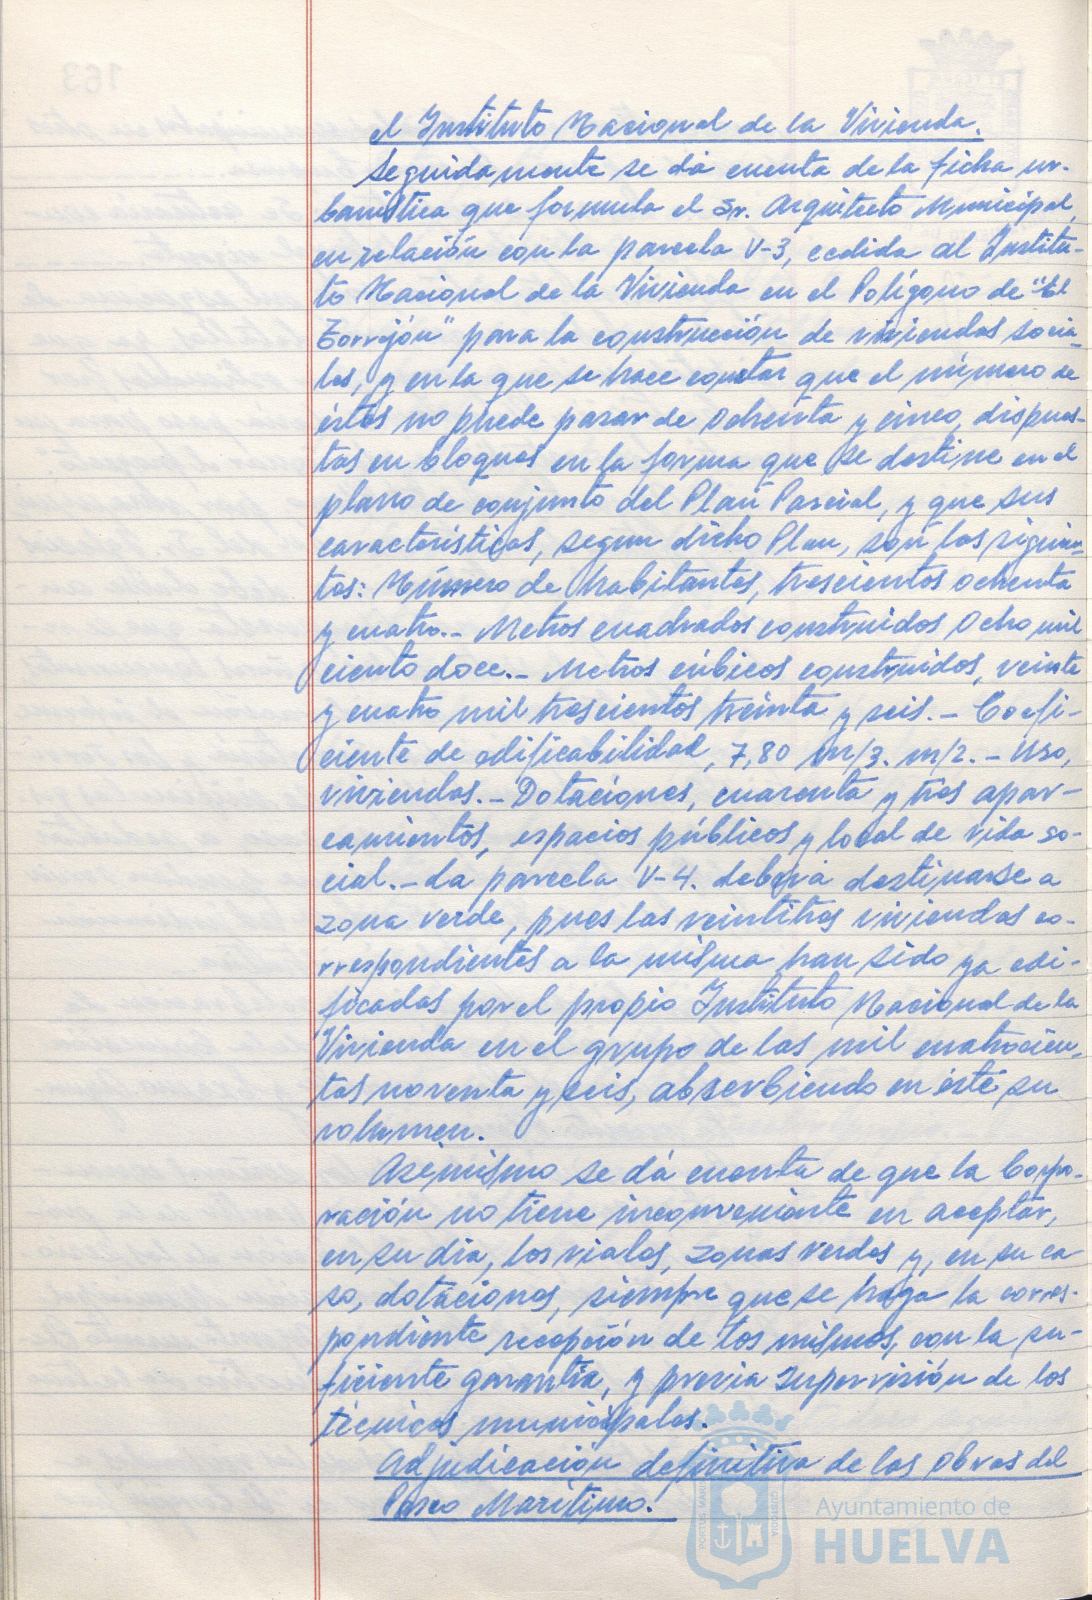 el Instituto Nacional de la Vivienda.
Seguidamente se dá cuenta de la ficha ur-
banística que formula el Sr. Arquitecto Municipal,
en relación con la parcela V-3, cedida al Institu-
to Nacional de la Vivienda en el Polígono de "El
Torrejón" para la construcción de viviendas socia-
les, y en la que se hace constar que el número de
éstas no puede pasar de ochenta y cinco, dispues-
tas en bloques en la forma que se destine en el
plano de conjunto del Plan Parcial, y que sus
características, segun dicho Plan, son las siguien-
tes: Número de habitantes, trescientos ochenta
y cuatro.- Metros cuadrados construidos ocho mil
ciento doce.- Metros cúbicos construidos, veinte
y cuatro mil trescientos treinta y seis.- Coefi-
ciente de edificabilidad, 7,80 m/3. m/2.- Uso,
viviendas.- Dotaciones, cuarenta y tres apar-
camientos, espacios públicos y local de vida so-
cial.- La parcela V-4. deberá destinarse a
zona verde, pues las veintitres viviendas co-
rrespondientes a la misma han sido ya edi-
ficadas por el propio Instituto Nacional de la
Vivienda en el grupo de las mil cuatrocien-
tas noventa y seis, absorbiendo en éste su
volumen.
Asimismo se dá cuenta de que la Corpo-
ración no tiene inconveniente en aceptar,
en su dia, los viales, zonas verdes y, en su ca
so, dotaciones, siempre que se haga la corres-
pondiente recepción de los mismos, con la su-
ficiente garantía, y previa supervisión de los
técnicos municipales.
Adjudicación definitiva de las obras del
Paseo Marítimo.
Ayuntamiento de
HUELVA